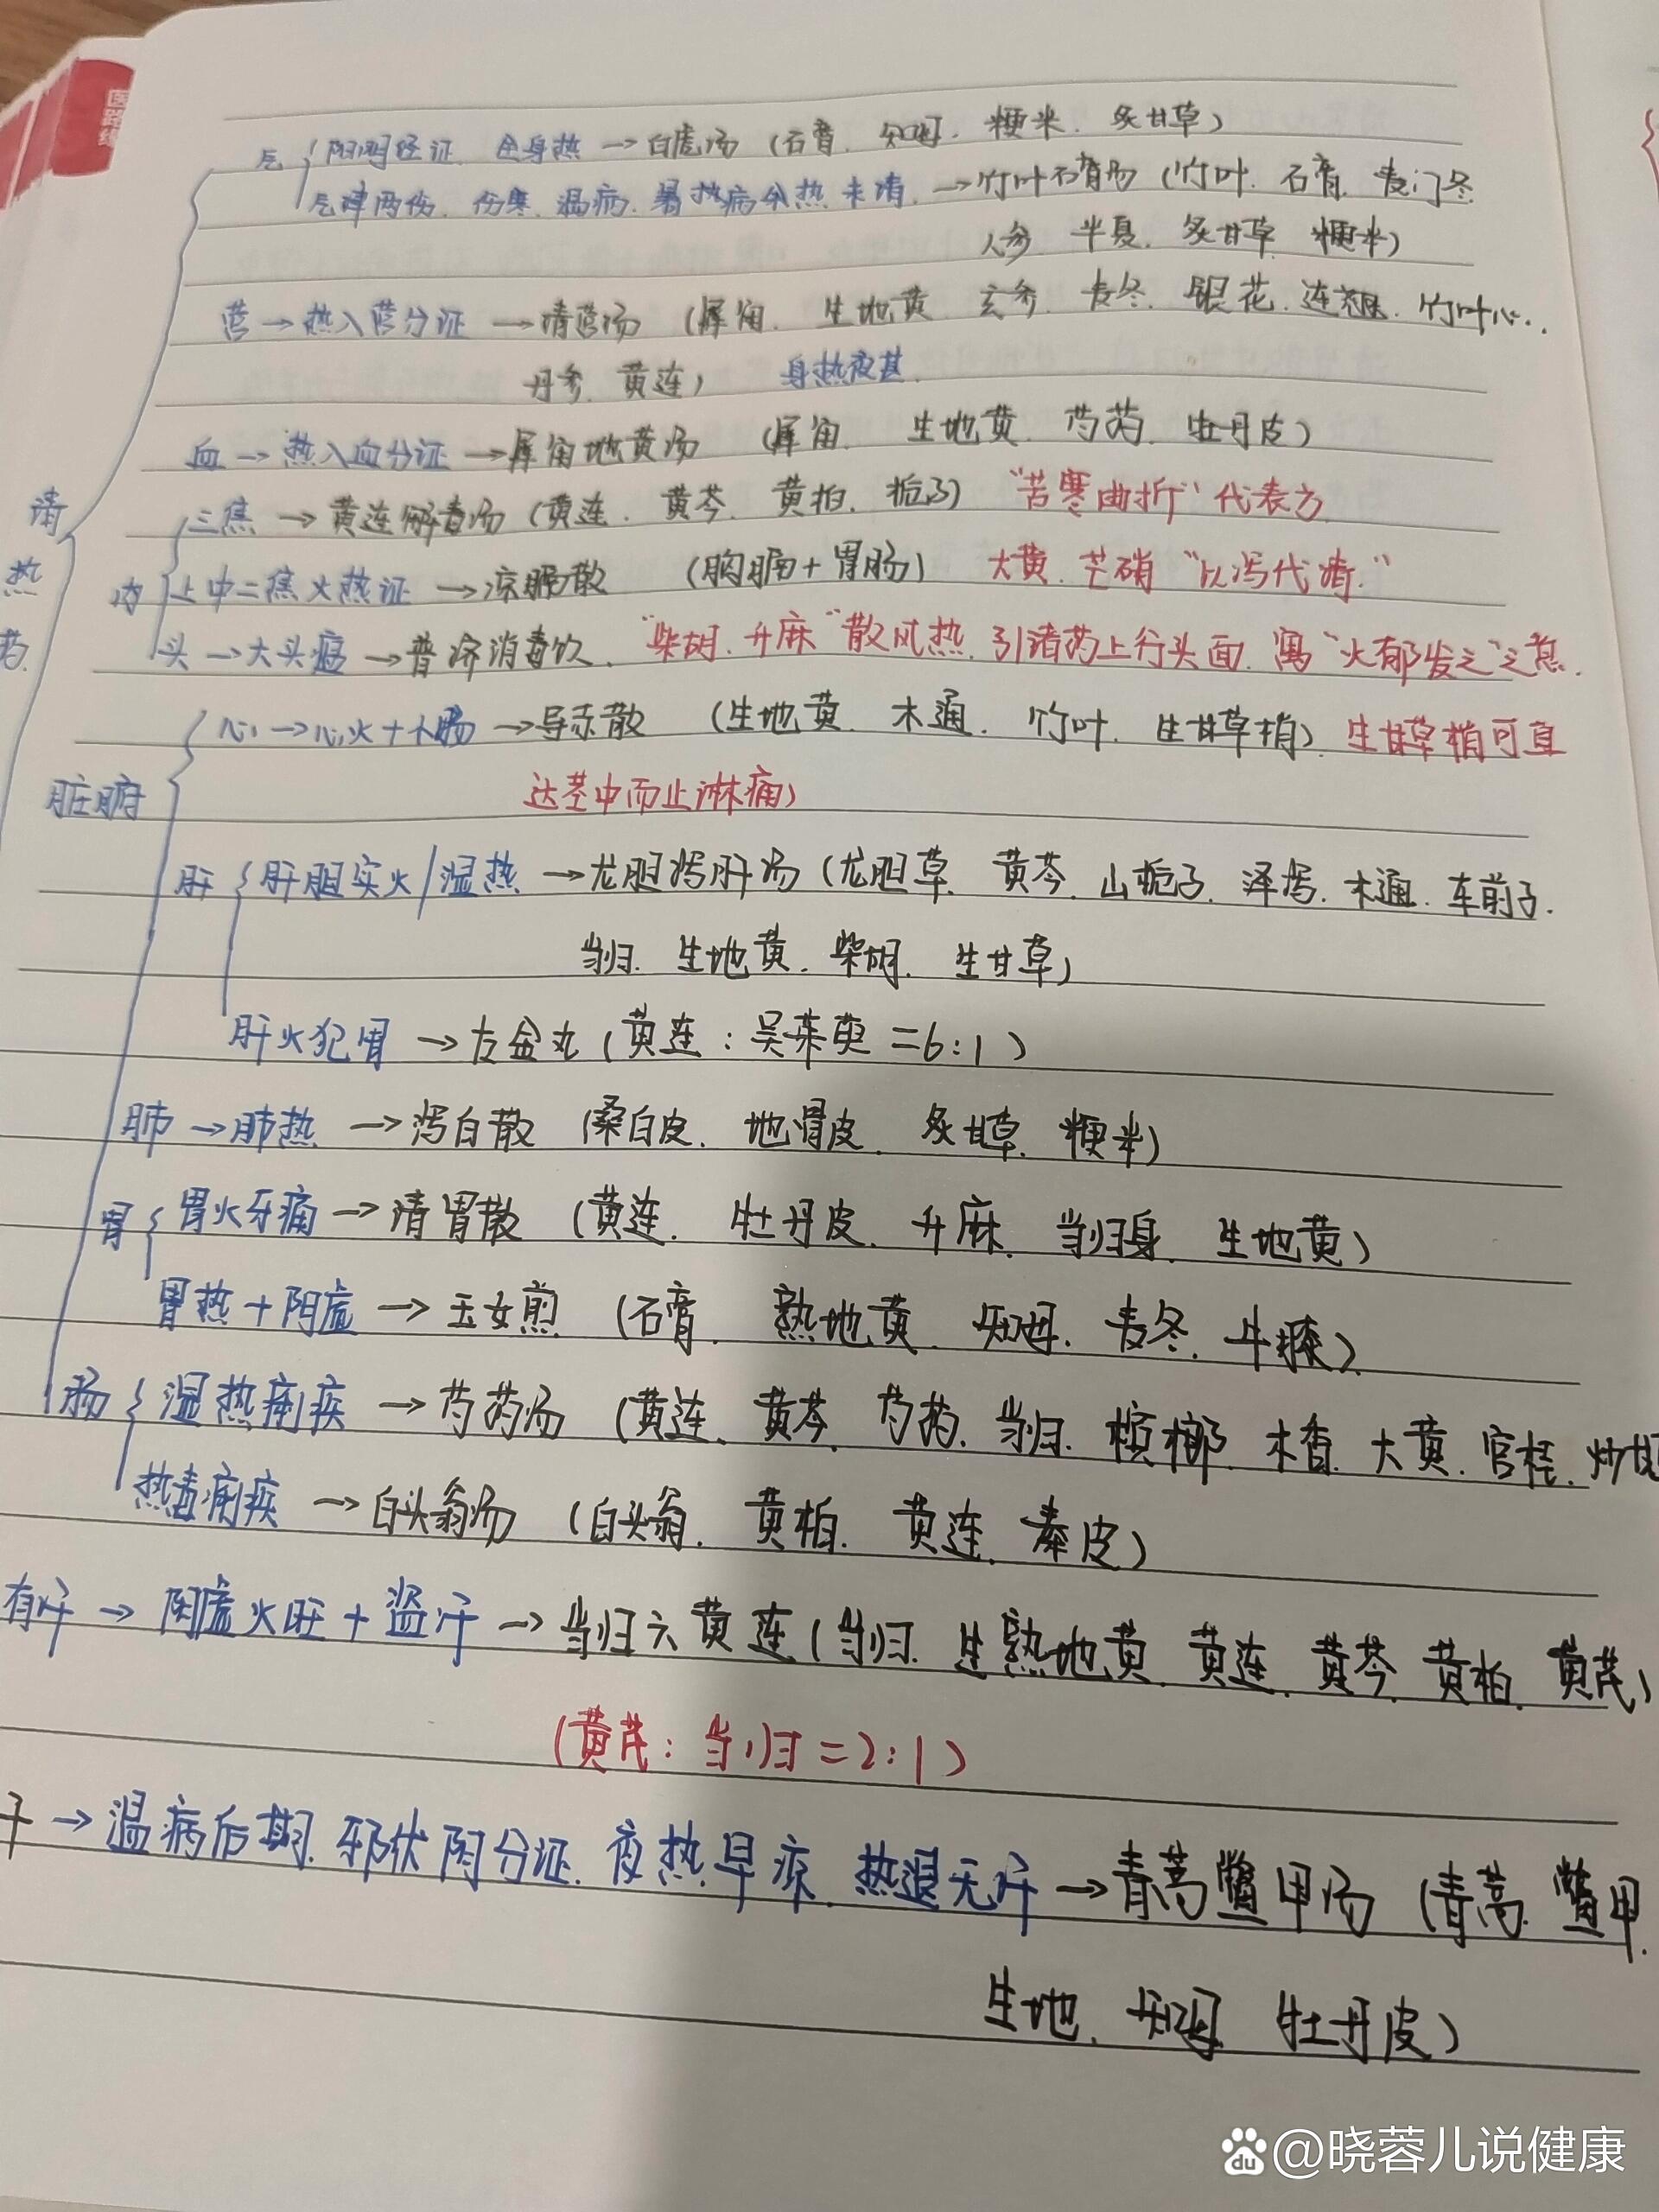 医路
气 阳明经证 全身热→白虎汤（石膏.知母.粳米.炙甘草）
气津两伤.伤寒.温病.暑热病余热未清.→竹叶石膏汤（竹叶.石膏.麦门冬
人参 半夏.炙甘草 粳米）
营→热入营分证→清营汤（犀角.生地黄 玄参.麦冬.银花.连翘.竹叶心..
丹参.黄连） 身热夜甚
血→热入血分证→犀角地黄汤（犀角 生地黄 芍药.牡丹皮）
清热药
三焦→黄连解毒汤（黄连.黄芩 黄柏.栀子）"苦寒曲折"代表方
内 上中二焦火热证→凉膈散（胸膈+胃肠） 大黄.芒硝"以泻代清."
头→大头瘟→普济消毒饮."柴胡.升麻"散风热.引诸药上行头面.寓"火郁发之"之意.
心→心火+小肠→导赤散（生地黄 木通.竹叶.生甘草梢）生甘草梢可直
达茎中而止淋痛）
脏腑
肝 肝胆实火/湿热→龙胆泻肝汤（龙胆草 黄芩.山栀子.泽泻.木通.车前子.
当归.生地黄.柴胡.生甘草）
肝火犯胃→左金丸（黄连:吴茱萸=6:1）
肺→肺热→泻白散（桑白皮.地骨皮.炙甘草.粳米）
胃 胃火牙痛→清胃散（黄连.牡丹皮.升麻.当归身 生地黄）
胃热+阴虚→玉女煎（石膏.熟地黄 知母.麦冬.牛膝）
肠 湿热痢疾→芍药汤（黄连.黄芩.芍药.当归.槟榔.木香.大黄.官桂.炒甘
热毒痢疾→白头翁汤（白头翁.黄柏.黄连.秦皮）
有汗→阴虚火旺+盗汗→当归六黄连（当归.生熟地黄 黄连.黄芩 黄柏.黄芪）
（黄芪:当归=2:1）
→温病后期.邪伏阴分证.夜热早凉.热退无汗→青蒿鳖甲汤（青蒿.鳖甲.
生地.知母 牡丹皮）
@晓蓉儿说健康